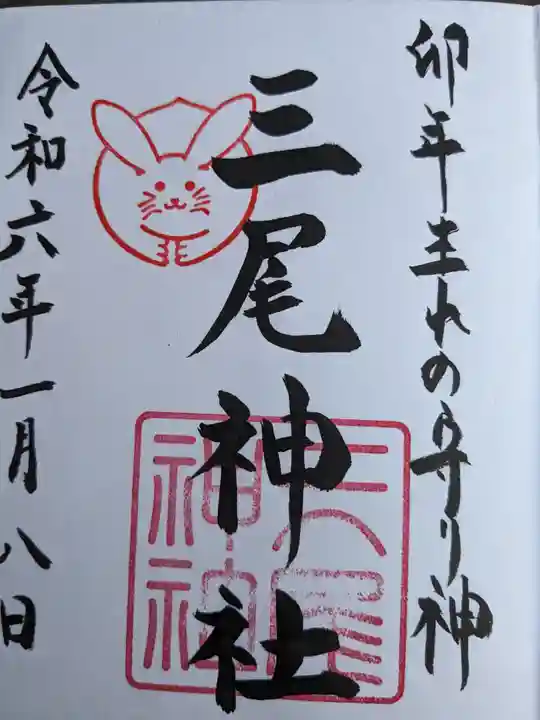 卯年生れの守り神
三尾神社
令和六年一月八日